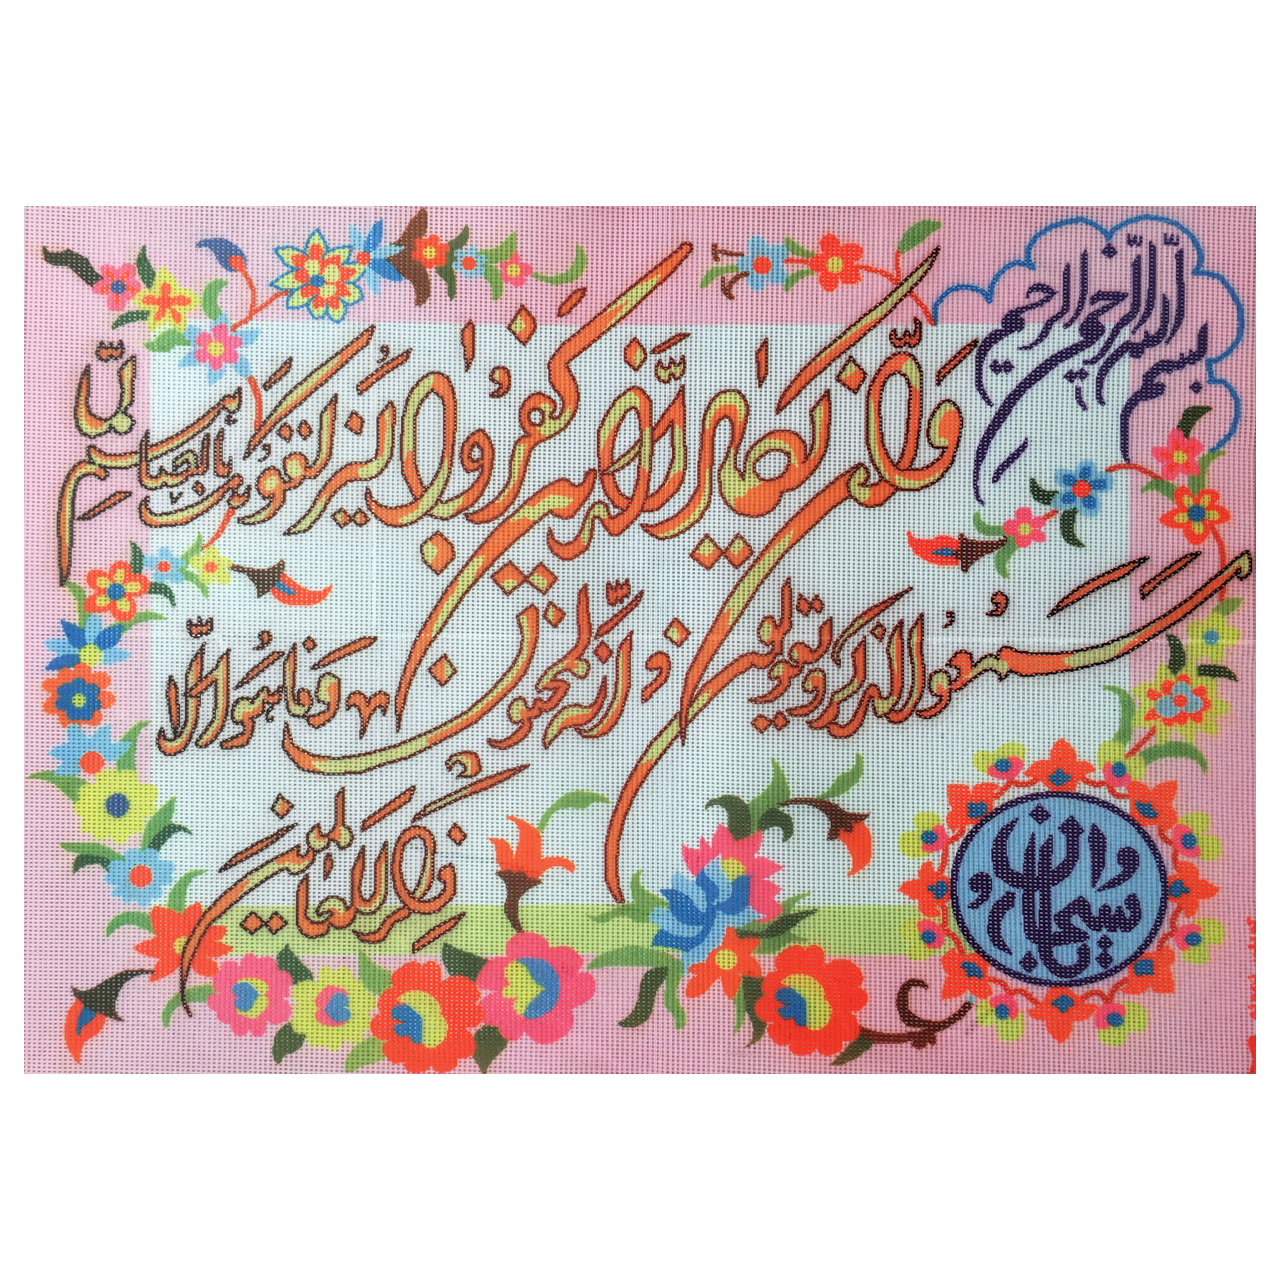 بسم الله الرحمن الرحیم
وَاِن یَکادُ الَّذینَ کَفَرُوا لَیُزلِقُونَکَ بِاَبصارِهِم لَمّا
سَمِعُوا الذِّکرَ وَ یَقُولُونَ اِنَّهُ لَمَجنُونٌ وَ ما هُوَ اِلّا
ذِکرٌ لِلعالَمینَ